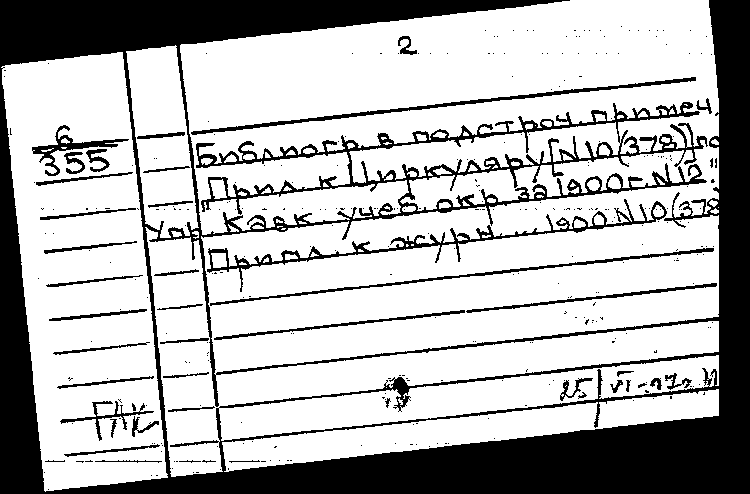 2
6
355
Библиогр. в подстроч. примеч.
"Прил. к Циркуляру [N 10 (378)] по
Упр. Кавк. учеб. окр. за 1900 г. N 12."
Припл. к журн. ... 1900 N 10 (378
ГАК
25 | VI-